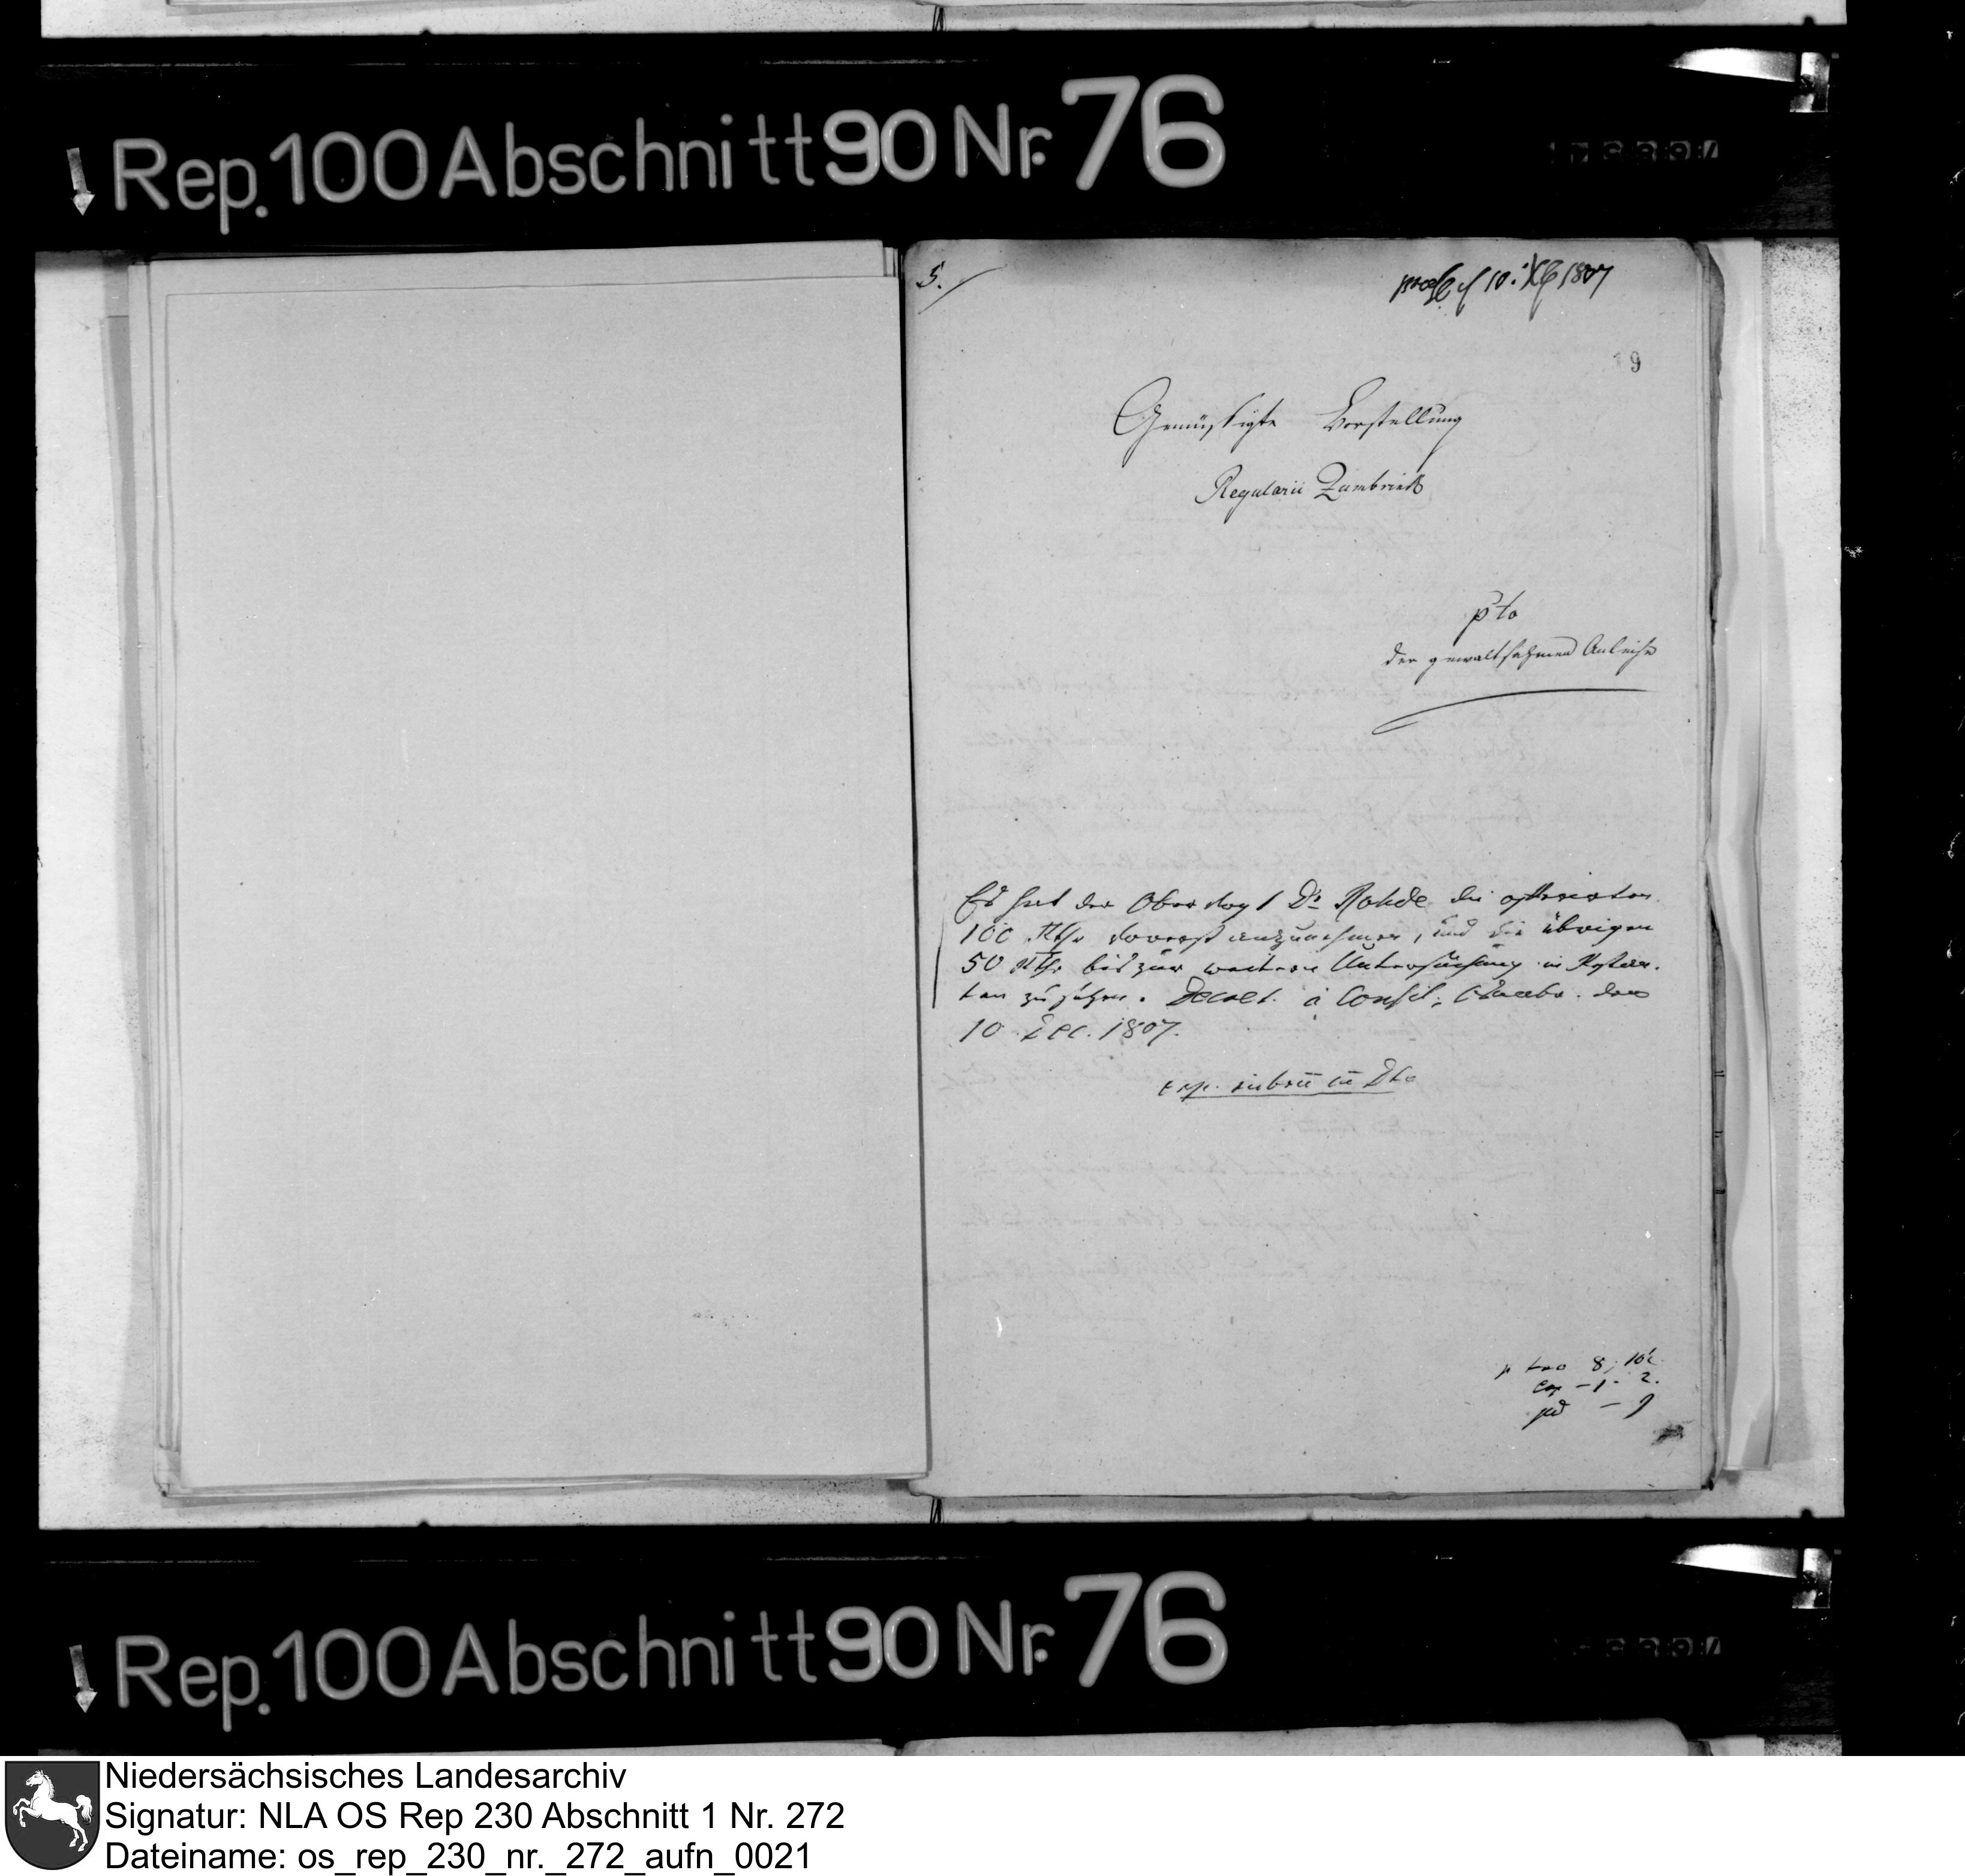 Rep. 100 Abschnitt 90 Nr. 76
5.
10. Xb 1807
9
Gemüßigte Vorstellung
Regularii Zumbrink
pto
der gewaltsahmen Anleihe
Es hat der Obervogt Dr. Rohde die offerirten
100 Rthr vorerst anzunehmen, und die übrigen
50 Rthr bis zur weitern Untersuchung in
zu. Decret. à Consil. den
10 Dec. 1807.
exp.
8, 10
cop – 1 - 2.
Rep. 100 Abschnitt 90 Nr. 76
Niedersächsisches Landesarchiv
Signatur: NLA OS Rep 230 Abschnitt 1 Nr. 272
Dateiname: os_rep_230_nr._272_aufn_0021